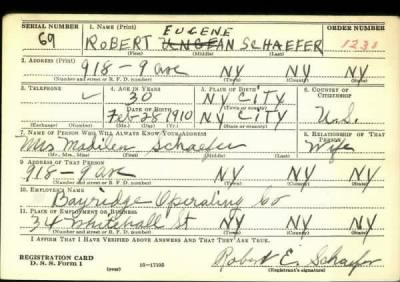 SERIAL NUMBER 1. NAME (Print) ORDER NUMBER
EUGENE
69 ROBERT SCHAEFER 1231
(First) (Middle) (Last)
2. ADDRESS (Print)
918-9 ave NY NY NY
(Number and street or R. F. D. number) (Town) (County) (State)
3. TELEPHONE 4. AGE IN YEARS 5. PLACE OF BIRTH 6. COUNTRY OF CITIZENSHIP
30 NY CITY
DATE OF BIRTH (Town or county)
Feb-28 1910 NY CITY
(Exchange) (Number) (Mo.) (Day) (Yr.) (State or country)
7. NAME OF PERSON WHO WILL ALWAYS KNOW YOUR ADDRESS 8. RELATIONSHIP OF THAT PERSON
Mrs Madilen Schaefer Wife
(Mr., Mrs., Miss) (First) (Middle) (Last)
9. ADDRESS OF THAT PERSON
918-9 ave NY NY NY
(Number and street or R. F. D. number) (Town) (County) (State)
10. EMPLOYER'S NAME
Bayridge Operating Co
11. PLACE OF EMPLOYMENT OR BUSINESS
34 Whitehall St NY NY NY
(Number and street or R. F. D. number) (Town) (County) (State)
I AFFIRM THAT I HAVE VERIFIED ABOVE ANSWERS AND THAT THEY ARE TRUE.
REGISTRATION CARD
D. S. S. Form 1 (over) 16-17105 Robert E. Schaefer
(Registrant's signature)